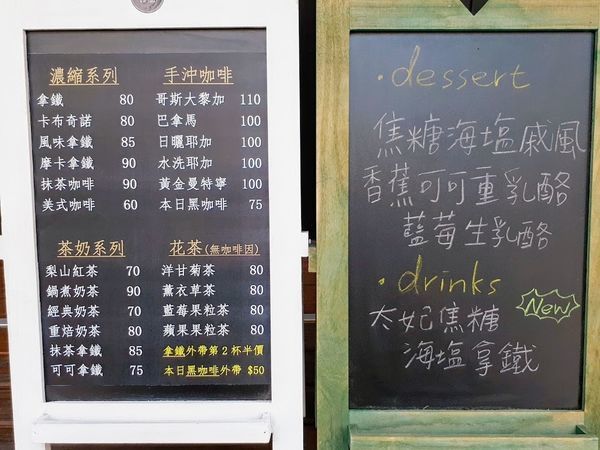 濃縮系列
拿鐵 80
卡布奇諾 80
風味拿鐵 85
摩卡拿鐵 90
抹茶咖啡 90
美式咖啡 60
手沖咖啡
哥斯大黎加 110
巴拿馬 100
日曬耶加 100
水洗耶加 100
黃金曼特寧 100
本日黑咖啡 75
茶奶系列
梨山紅茶 70
鍋煮奶茶 90
經典奶茶 70
重焙奶茶 80
抹茶拿鐵 85
可可拿鐵 75
花茶(無咖啡因)
洋甘菊茶 80
薰衣草茶 80
藍莓果粒茶 80
蘋果果粒茶 80
拿鐵外帶第2杯半價
本日黑咖啡外帶 $50
·dessert
焦糖海塩戚風
香蕉可可重乳酪
藍莓生乳酪
·drinks
New
太妃焦糖
海塩拿鐵